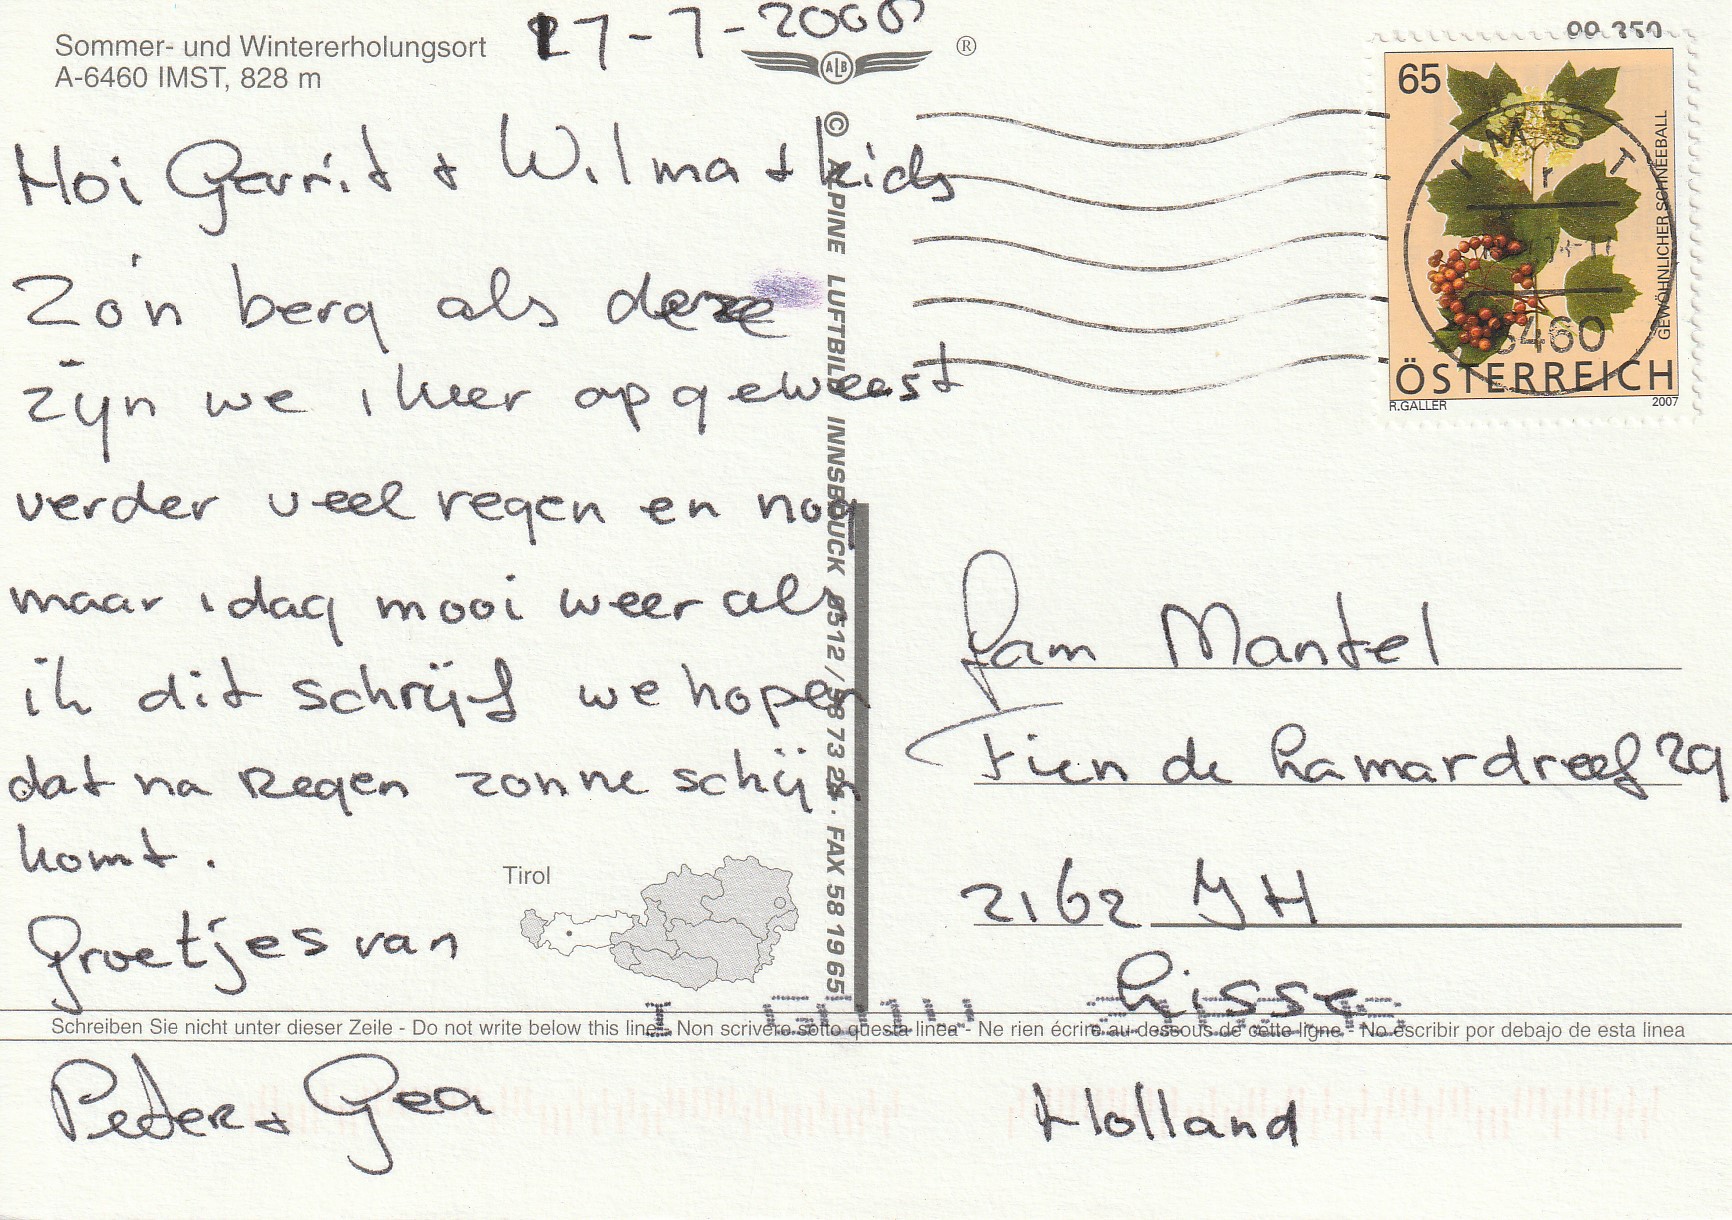 Sommer- und Wintererholungsort
A-6460 IMST, 828 m
17-7-2008
ALB
®
Moi Gerrit + Wilma + kids
Zo'n berg als deze
zijn we ikeer op geweest
verder veel regen en nog
maar 1 dag mooi weer als
ik dit schrijf we hopen
dat na Regen zonne schijn
komt.
Groetjes van
Peter + Gea
Tirol
© ALPINE LUFTBILD INNSBRUCK 0512 / 58 73 24 · FAX 58 19 65
99 350
65
GEWÖHNLICHER SCHNEEBALL
IMST
6460
ÖSTERREICH
R.GALLER 2007
Fam Mantel
Fien de Lamardreef 29
2162 JH
Lisse
Holland
Schreiben Sie nicht unter dieser Zeile - Do not write below this line - Non scrivere sotto questa linea - Ne rien écrire au-dessous de cette ligne - No escribir por debajo de esta linea